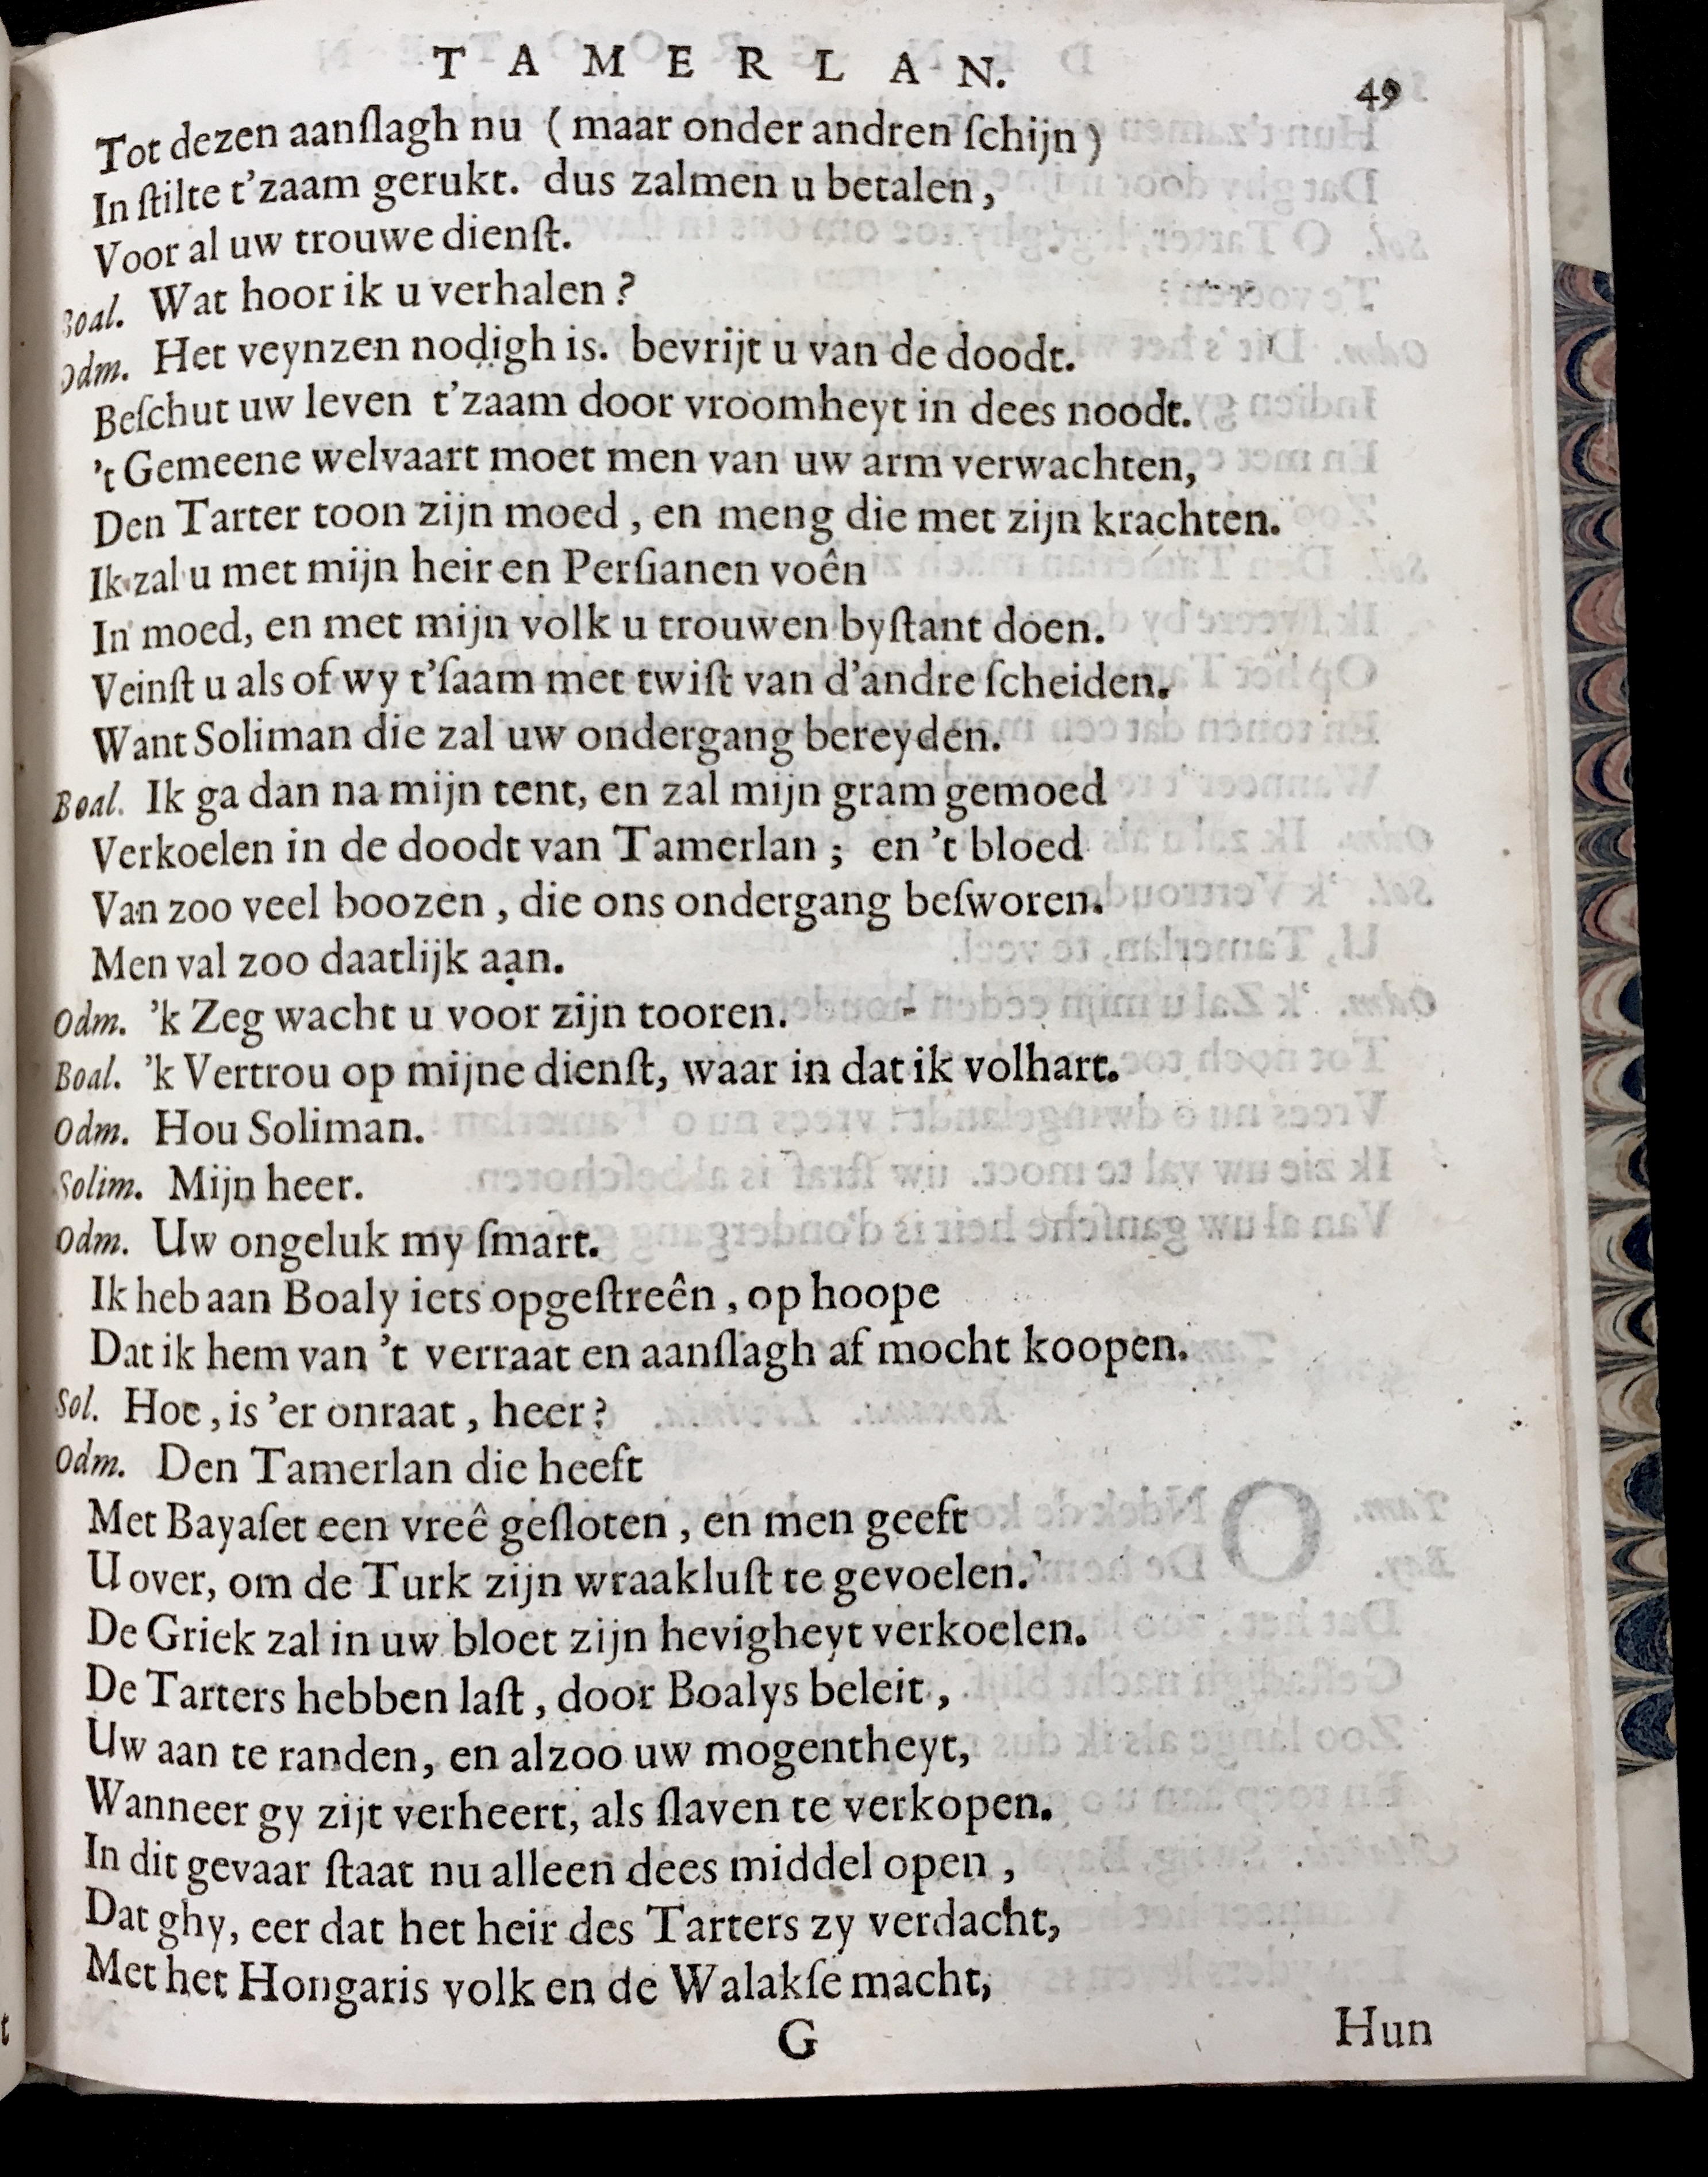 TAMERLAN.
49
Tot dezen aanſlagh nu (maar onder andren ſchijn)
In ſtilte t'zaam gerukt. dus zalmen u betalen,
Voor al uw trouwe dienſt.
Boal. Wat hoor ik u verhalen?
Odm. Het veynzen nodigh is. bevrijt u van de doodt.
Beſchut uw leven t'zaam door vroomheyt in dees noodt.
't Gemeene welvaart moet men van uw arm verwachten,
Den Tarter toon zijn moed, en meng die met zijn krachten.
Ik zal u met mijn heir en Perſianen voên
In moed, en met mijn volk u trouwen byſtant doen.
Veinſt u als of wy t'ſaam met twiſt van d'andre ſcheiden.
Want Soliman die zal uw ondergang bereyden.
Boal. Ik ga dan na mijn tent, en zal mijn gram gemoed
Verkoelen in de doodt van Tamerlan; en 't bloed
Van zoo veel boozen, die ons ondergang beſworen.
Men val zoo daatlijk aan.
Odm. 'k Zeg wacht u voor zijn tooren.
Boal. 'k Vertrou op mijne dienſt, waar in dat ik volhart.
Odm. Hou Soliman.
Solim. Mijn heer.
Odm. Uw ongeluk my ſmart.
Ik heb aan Boaly iets opgeſtreên, op hoope
Dat ik hem van 't verraat en aanſlagh af mocht koopen.
Sol. Hoe, is 'er onraat, heer?
Odm. Den Tamerlan die heeft
Met Bayaſet een vreê geſloten, en men geeft
U over, om de Turk zijn wraakluſt te gevoelen.
De Griek zal in uw bloet zijn hevigheyt verkoelen.
De Tarters hebben laſt, door Boalys beleit,
Uw aan te randen, en alzoo uw mogentheyt,
Wanneer gy zijt verheert, als ſlaven te verkopen.
In dit gevaar ſtaat nu alleen dees middel open,
Dat ghy, eer dat het heir des Tarters zy verdacht,
Met het Hongaris volk en de Walakſe macht,
G
Hun